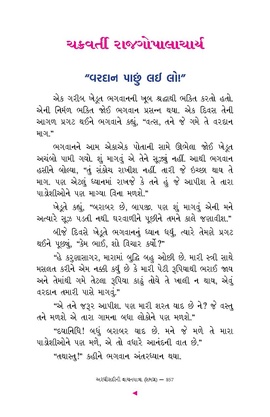 ચક્રવર્તી રાજગોપાલાચાર્ય
“વરદાન પાછું લઈ લો!”
એક ગરીબ ખેડૂત ભગવાનની ખૂબ શ્રદ્ધાથી ભક્તિ કરતો હતો.
એની નિર્મળ ભક્તિ જોઈ ભગવાન પ્રસન્ન થયા. એક દિવસ તેની
આગળ પ્રગટ થઈને ભગવાને કહ્યું, “વત્સ, તને જે ગમે તે વરદાન
માગ.”
ભગવાનને આમ એકાએક પોતાની સામે ઊભેલા જોઈ ખેડૂત
અચંબો પામી ગયો. શું માગવું એ તેને સૂઝ્યું નહીં. આથી ભગવાન
હસીને બોલ્યા, “તું સંકોચ રાખીશ નહીં. તારી જે ઇચ્છા થાય તે
માગ. પણ એટલું ધ્યાનમાં રાખજે કે તને હું જે આપીશ તે તારા
પાડોશીઓને પણ માગ્યા વિના મળશે.”
ખેડૂતે કહ્યું, “બરાબર છે, બાપજી. પણ શું માગવું એની મને
અત્યારે સૂઝ પડતી નથી. ઘરવાળીને પૂછીને તમને કાલે જણાવીશ.”
બીજે દિવસે ખેડૂતે ભગવાનનું ધ્યાન ધર્યું, ત્યારે તેમણે પ્રગટ
થઈને પૂછ્યું, “કેમ ભાઈ, શો વિચાર કર્યો?”
“હે કરુણાસાગર, મારામાં બુદ્ધિ બહુ ઓછી છે. મારી સ્ત્રી સાથે
મસલત કરીને એમ નક્કી કર્યું છે કે મારી પેટી રૂપિયાથી ભરાઈ જાય
અને તેમાંથી ગમે તેટલા રૂપિયા કાઢું તોયે તે ખાલી ન થાય, એવું
વરદાન તમારી પાસે માગવું.”
“એ તને જરૂર આપીશ. પણ મારી શરત યાદ છે ને? જે વસ્તુ
તને મળશે એ તારા ગામના બધા લોકોને પણ મળશે.”
“દયાનિધિ! બધું બરાબર યાદ છે. મને જે મળે તે મારા
પાડોશીઓને પણ મળે, એ તો વધારે આનંદની વાત છે.”
“તથાસ્તુ!” કહીને ભગવાન અંતરધ્યાન થયા.